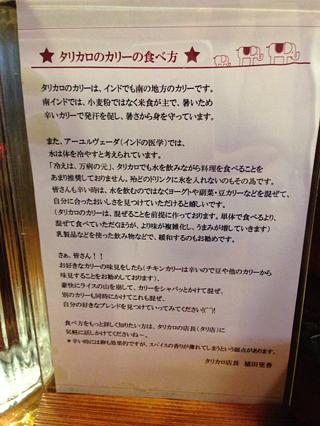 ★ タリカロのカリーの食べ方 ★
タリカロのカリーは、インドでも南の地方のカリーです。
南インドでは、小麦粉ではなく米食が主で、暑いため
辛いカリーで発汗を促し、暑さから身を守っています。
また、アーユルヴェーダ（インドの医学）では、
水は体を冷やすと考えられています。
「冷えは、万病の元」、タリカロでも水を飲みながら料理を食べることを
あまり推奨しておりません。殆どのドリンクに氷を入れないのもその為です。
皆さんも辛い時は、水を飲むのではなくヨーグトや副菜・豆カリーなどを混ぜて、
自分に合ったおいしさを見つけていただけると嬉しいです。
（タリカロのカリーは、混ぜることを前提に作っております。単体で食べるより、
混ぜて食べていただくほうが、より味が複雑化し、うまみが増していきます）
乳製品などを使った飲み物などで、緩和するのもお勧めです。
さぁ、皆さん！！
お好きなカリーの味見をしたら（チキンカリーは辛いので豆や他のカリーから
味見することをお勧めしております）、
豪快にライスの山を崩して、カリーをシャバッとかけて混ぜ、
別のカリーも同時にかけてこれも混ぜ、
自分の好きなブレンドを見つけていってみてください！(^^)!
食べ方をもっと詳しく知りたい方は、タリカロの店長（タリ店）に
気軽に話しかけてくださいね～。
＊辛い時には卵も効果的ですが、スパイスの香りが薄れてしまうという弱点があります。
タリカロ店長 植田亜香